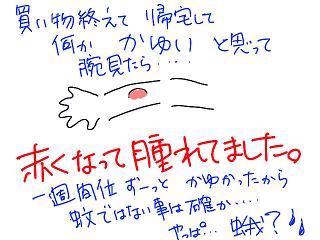 買い物終えて 帰宅して
何か かゆい と思って
腕見たら・・・・・
赤くなって腫れてました。
一週間位 ずーっと かゆかったから
蚊ではない事は確か・・・・
やっぱ… 蛾?